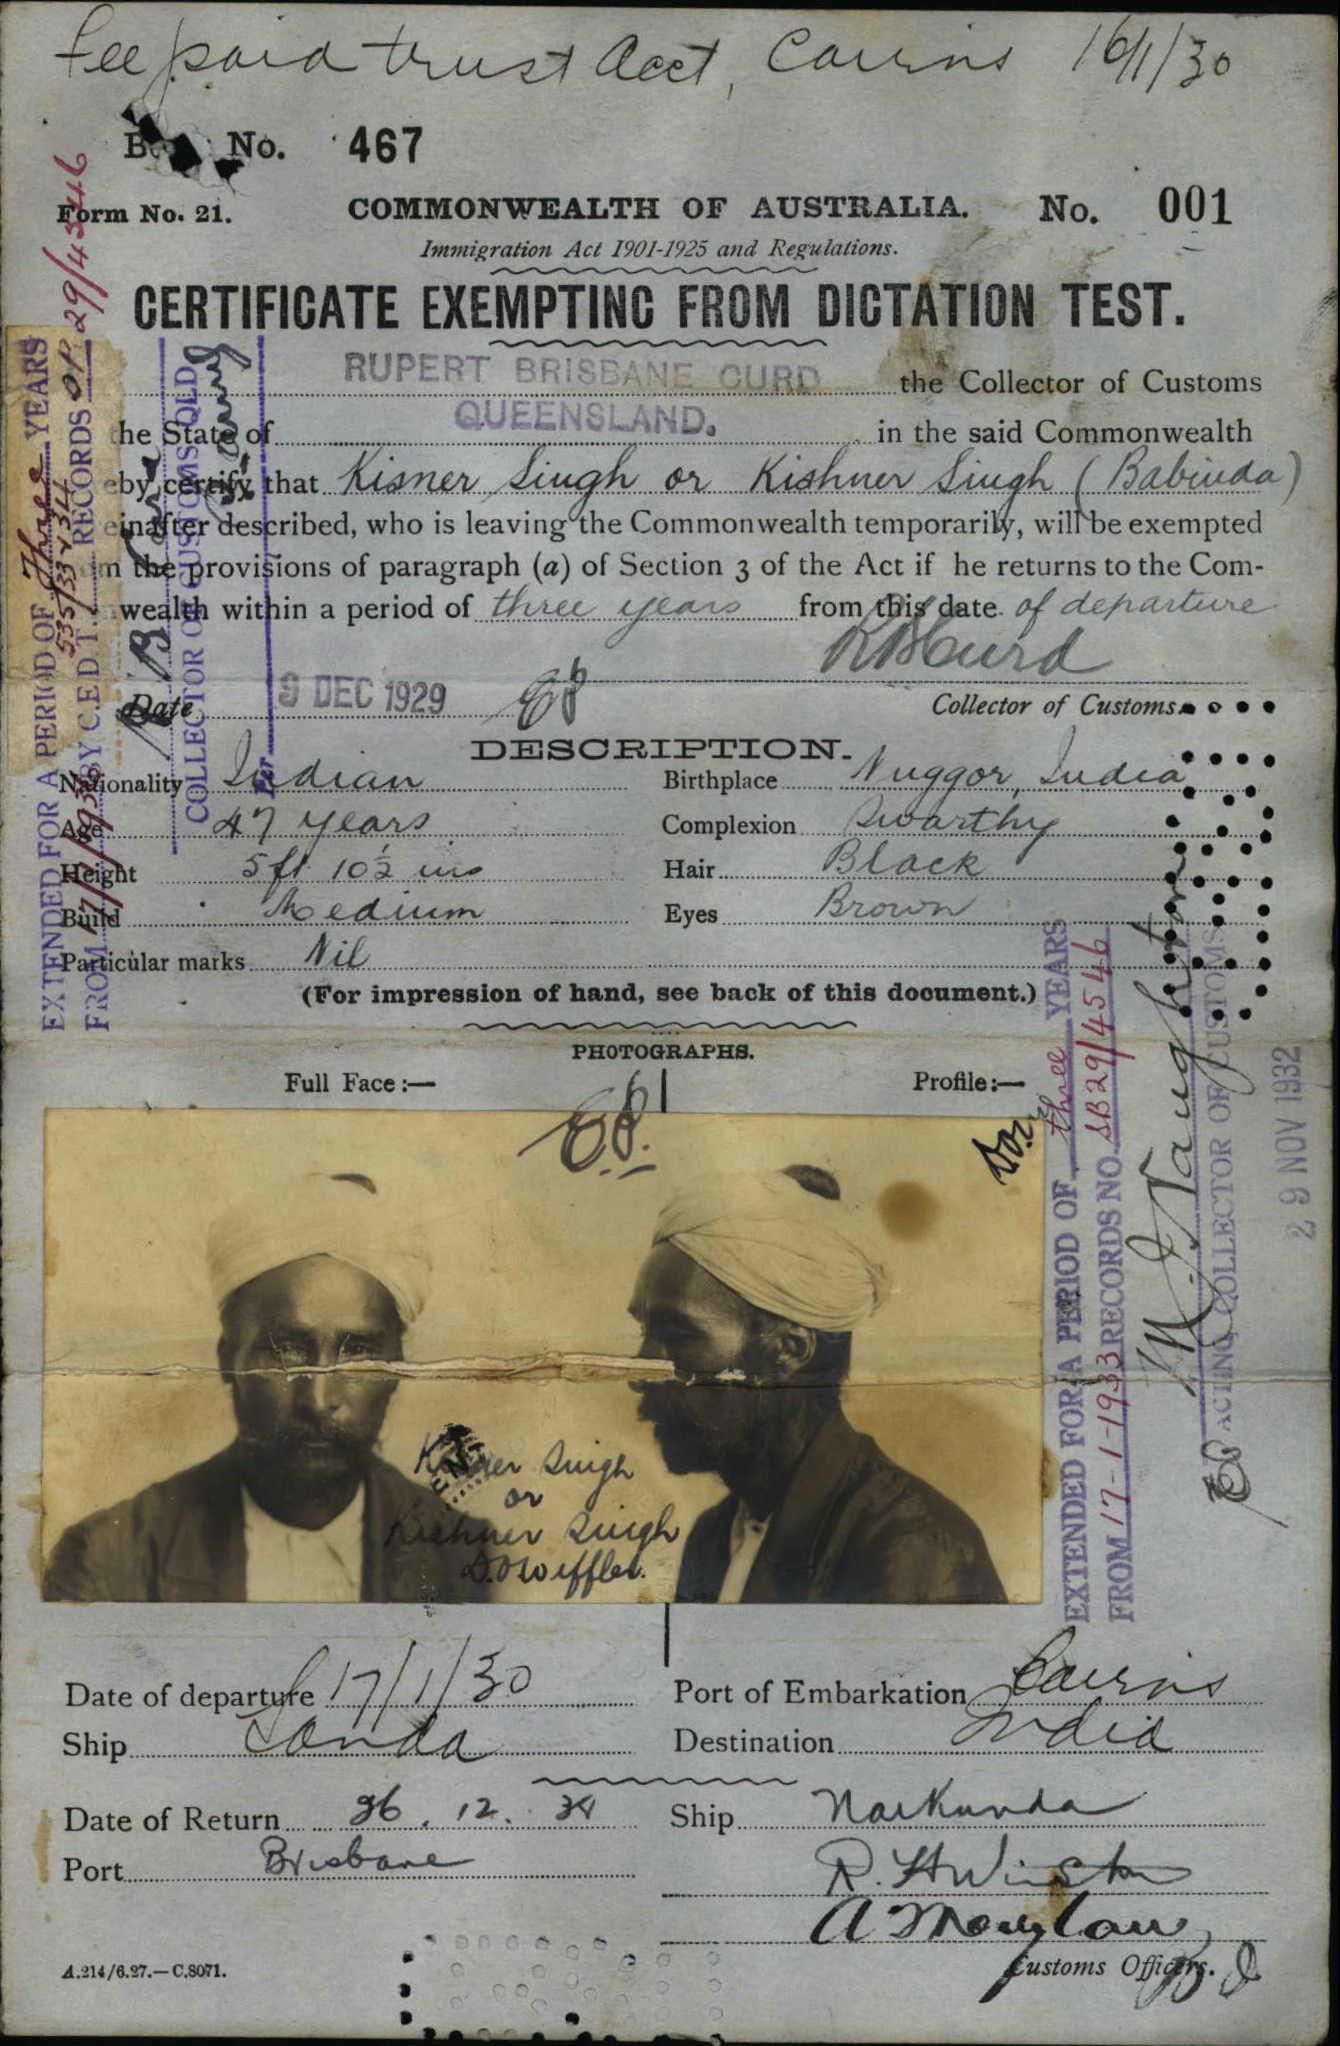 Fee paid trust Acct, Cairns 16/1/30
No. 467
Form No. 21.
COMMONWEALTH OF AUSTRALIA.
No. 001
Immigration Act 1901-1925 and Regulations.
CERTIFICATE EXEMPTING FROM DICTATION TEST.
RUPERT BRISBANE CURD the Collector of Customs
the State of QUEENSLAND. in the said Commonwealth
eby certify that Kisner Singh or Kishner Singh (Babinda)
einafter described, who is leaving the Commonwealth temporarily, will be exempted
m the provisions of paragraph (a) of Section 3 of the Act if he returns to the Com-
wealth within a period of three years from this date of departure
RBCurd
Date 9 DEC 1929
Collector of Customs.
DESCRIPTION.
Nationality Indian
Birthplace Nuggor, India
Age 47 years
Complexion Swarthy
Height 5 ft 10½ ins
Hair Black
Build Medium
Eyes Brown
Particular marks Nil
(For impression of hand, see back of this document.)
PHOTOGRAPHS.
Full Face:—
Profile:—
Kisner Singh
or
Kishner Singh
Date of departure 17/1/30
Port of Embarkation Cairns
Ship Tanda
Destination India
Date of Return 26.12.34
Ship Narkunda
Port Brisbane
R. H Winston
Customs Officers.
A.214/6.27.—C.8071.
EXTENDED FOR A PERIOD OF Three YEARS
FROM 17/1/1936 BY C.E.D.T. RECORDS 29/4546
535/33434
COLLECTOR OF CUSTOMS QLD
Per
EXTENDED FOR A PERIOD OF three YEARS
FROM 17-1-1933 RECORDS NO. SB29/4546
M. J. Naughton
ACTING COLLECTOR OF CUSTOMS
29 NOV 1932